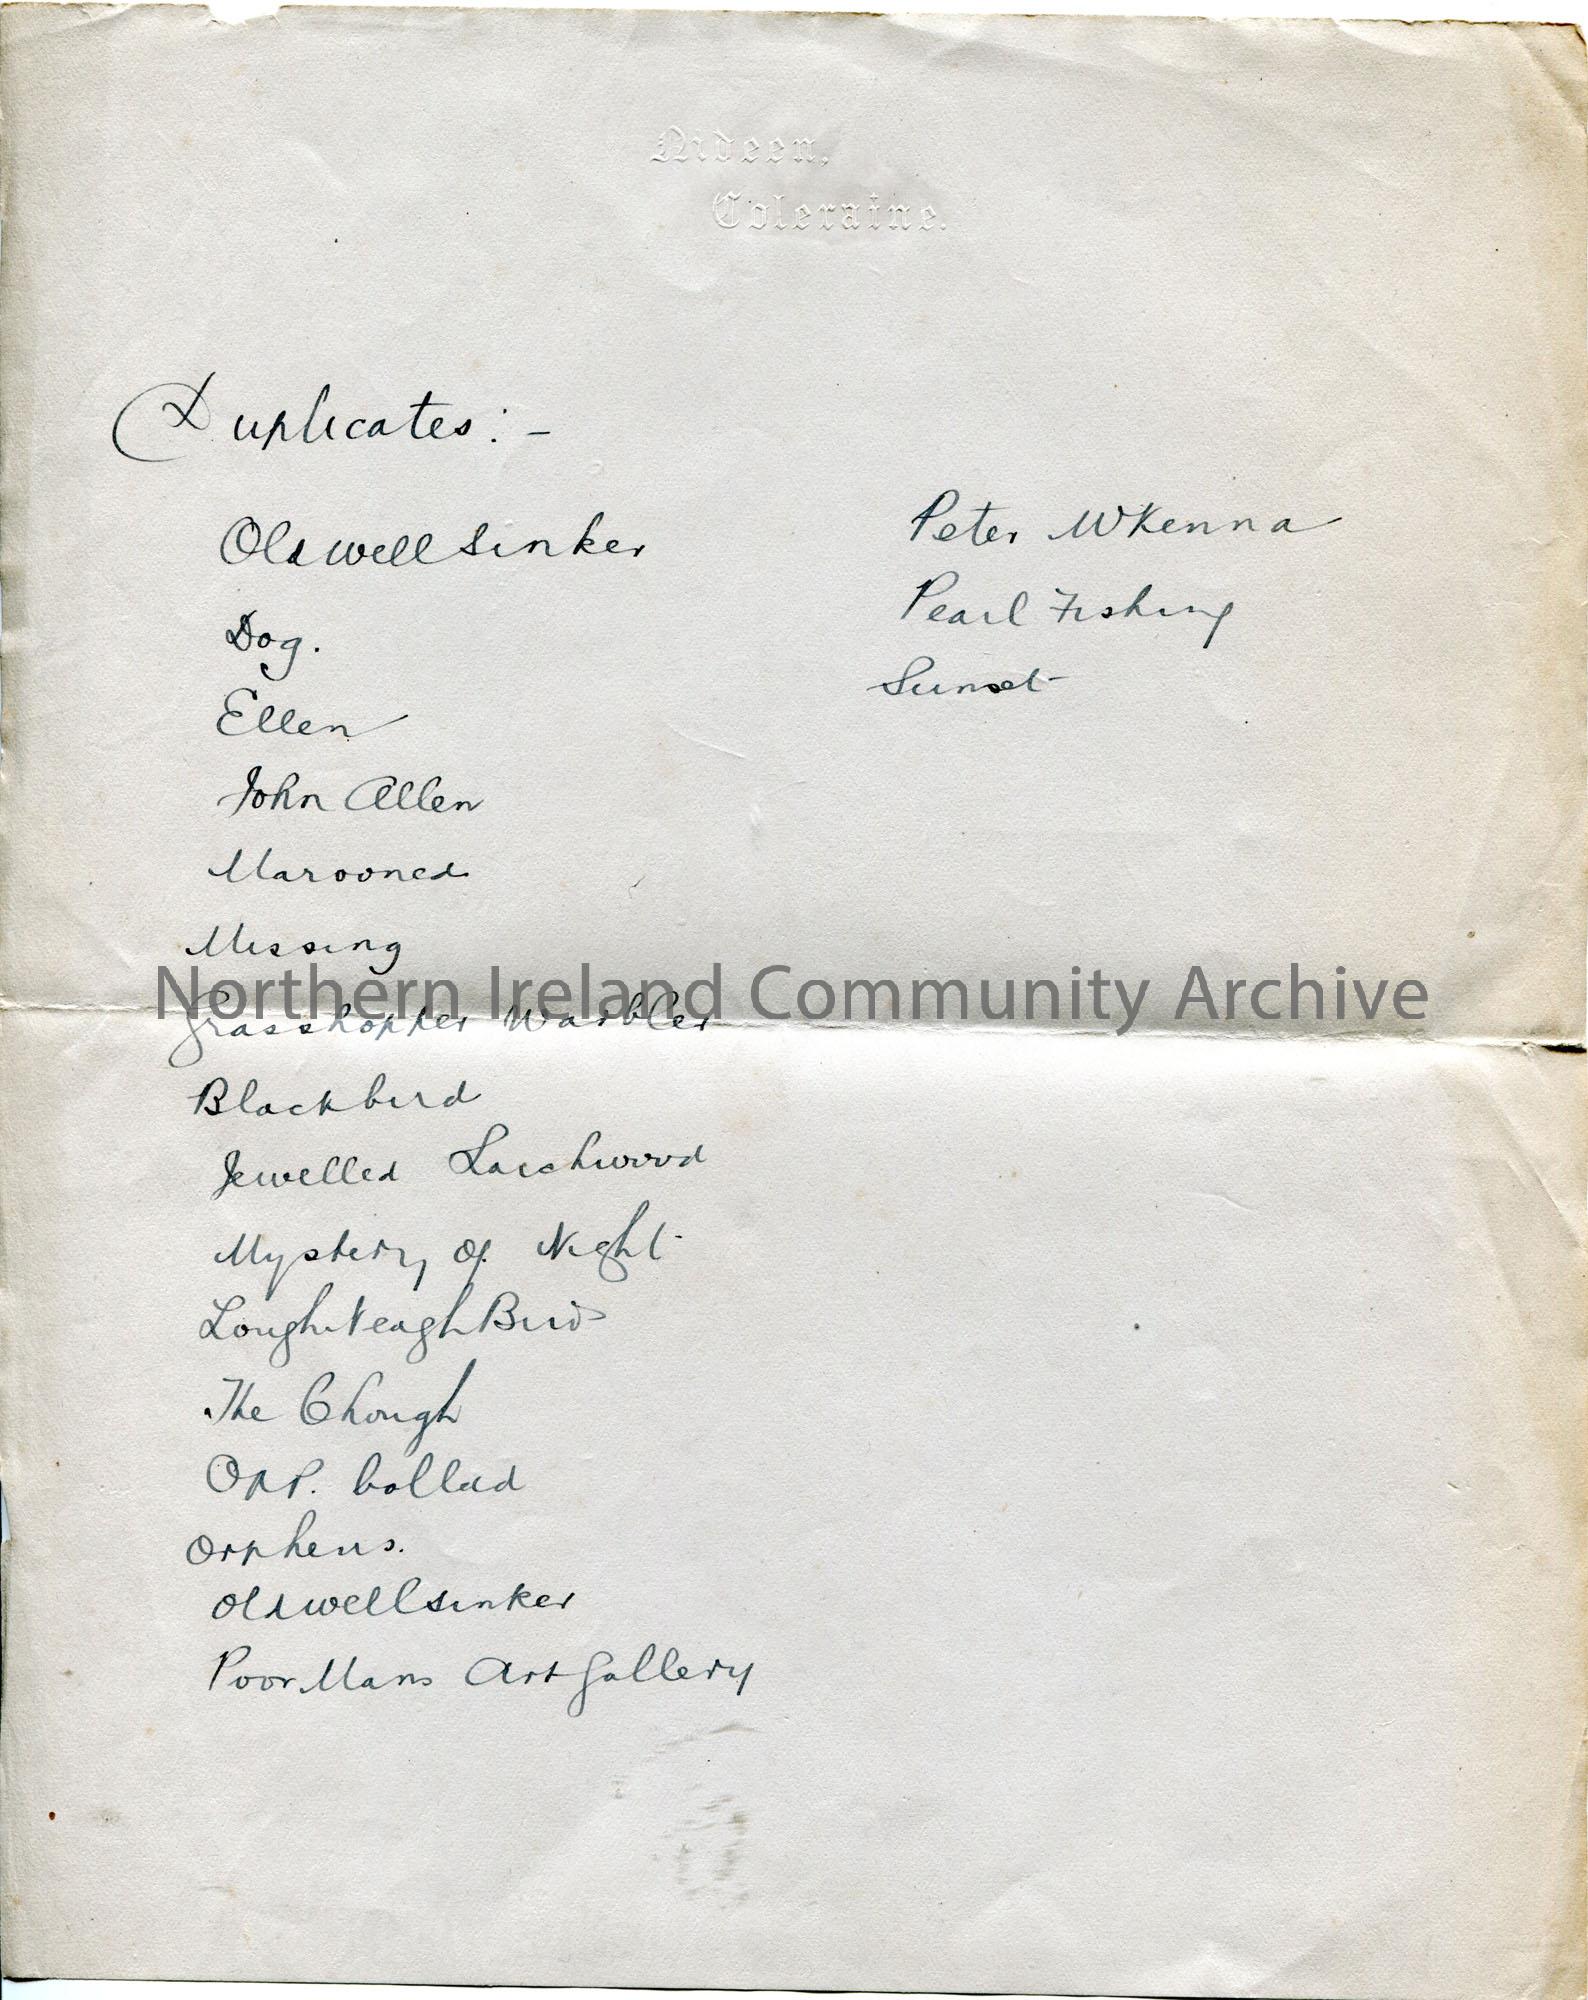 Aideen,
Coleraine.
Duplicates:-
Old well sinker
Dog.
Ellen
John Allen
Marooned
Missing
Grasshopper Warbler
Blackbird
Jewelled Larchwood
Mystery of Night
Lough Neagh Bird
The Chough
Opp. ballad
Orpheus.
Old well sinker
Poor Mans Art Gallery
Peter McKenna
Pearl Fishing
Sunset
Northern Ireland Community Archive